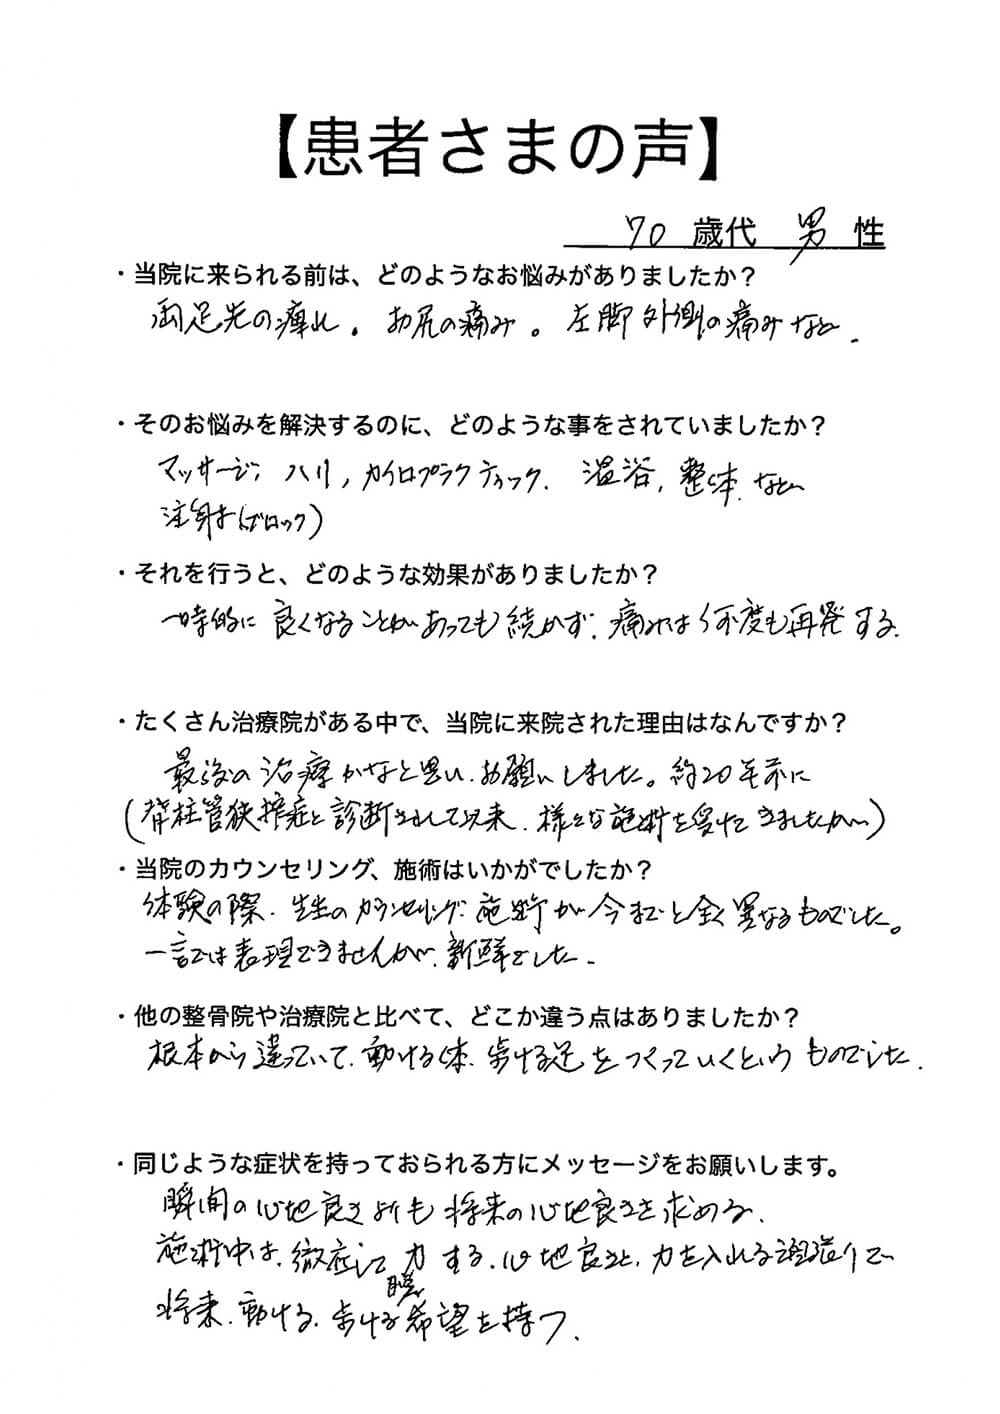 【患者さまの声】
70 歳代 男 性
・当院に来られる前は、どのようなお悩みがありましたか？
両足先の痺れ。お尻の痛み。左脚外側の痛みなど.
・そのお悩みを解決するのに、どのような事をされていましたか？
マッサージ, ハリ, カイロプラクティック. 温浴, 整体. など
注射（ブロック）
・それを行うと、どのような効果がありましたか？
一時的に良くなることがあっても続かず. 痛みは何度も再発する.
・たくさん治療院がある中で、当院に来院された理由はなんですか？
最後の治療かなと思い、お願いしました。約20年前に
(脊柱管狭搾症と診断されて以来、様々な施術を受けてきましたが)
・当院のカウンセリング、施術はいかがでしたか？
体験の際、先生のカウンセリング、施術が今までと全く異なるものでした。
一言では表現できませんが、新鮮でした.
・他の整骨院や治療院と比べて、どこか違う点はありましたか？
根本から違っていて、動ける体、歩ける足をつくっていくというものでした.
・同じような症状を持っておられる方にメッセージをお願いします。
瞬間の心地良さよりも将来の心地良さを求める.
施術中は、徹底して力する、心地良さと、力を入れる
将来、動ける、歩ける希望を持つ.